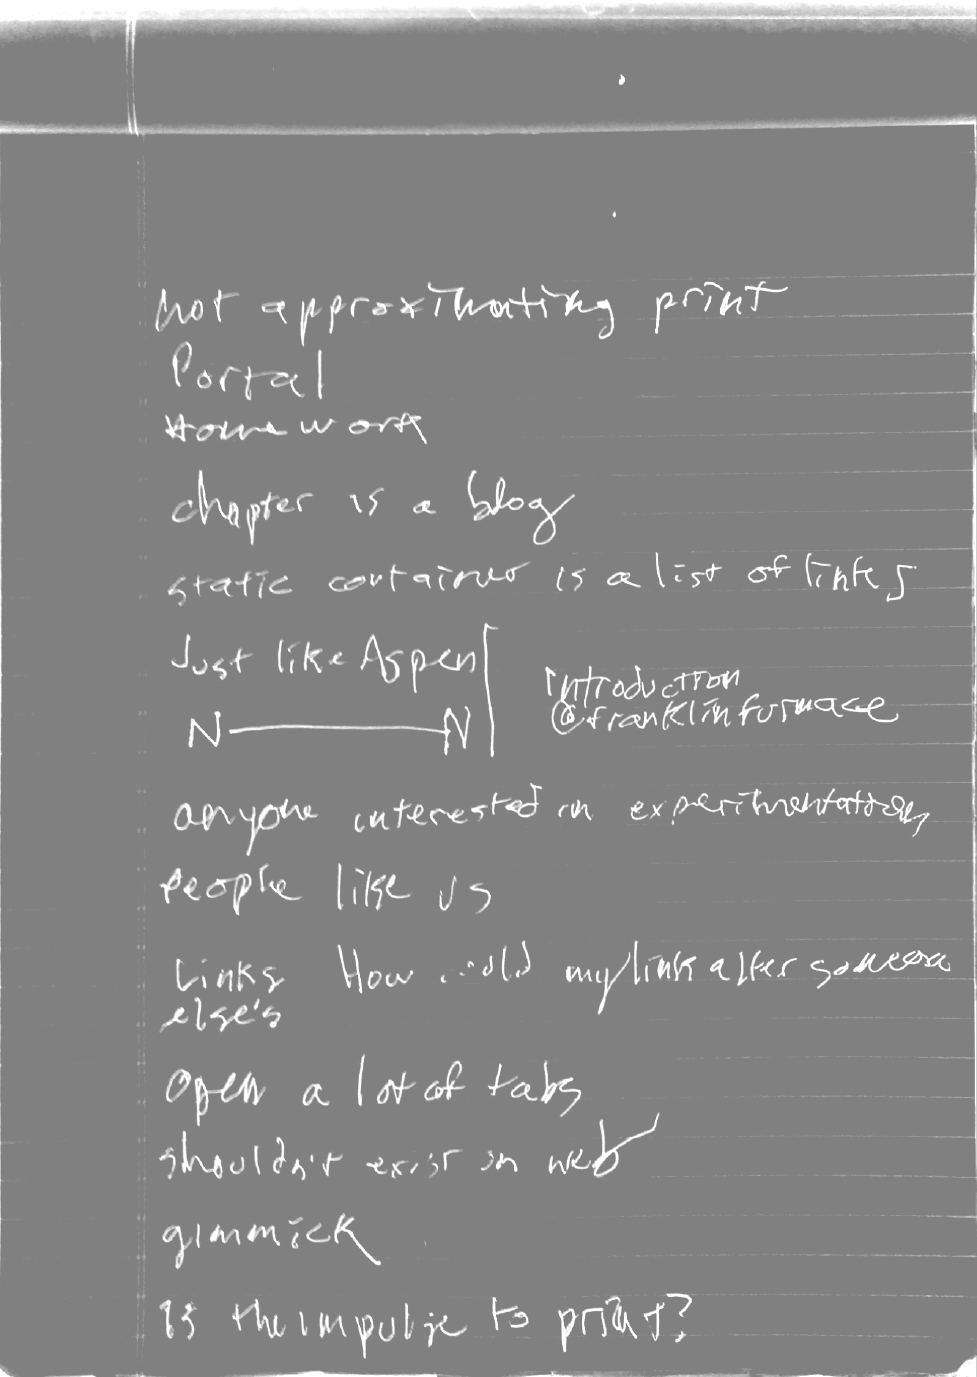 not approximating print
Portal
Homework
chapter is a blog
static container is a list of links
Just like Aspen
N N
Introduction
@franklinfurnace
anyone interested in experimentation
people like us
Links How could my link alter someone
else's
Open a lot of tabs
shouldn't exist on web
gimmick
is the impulse to print?